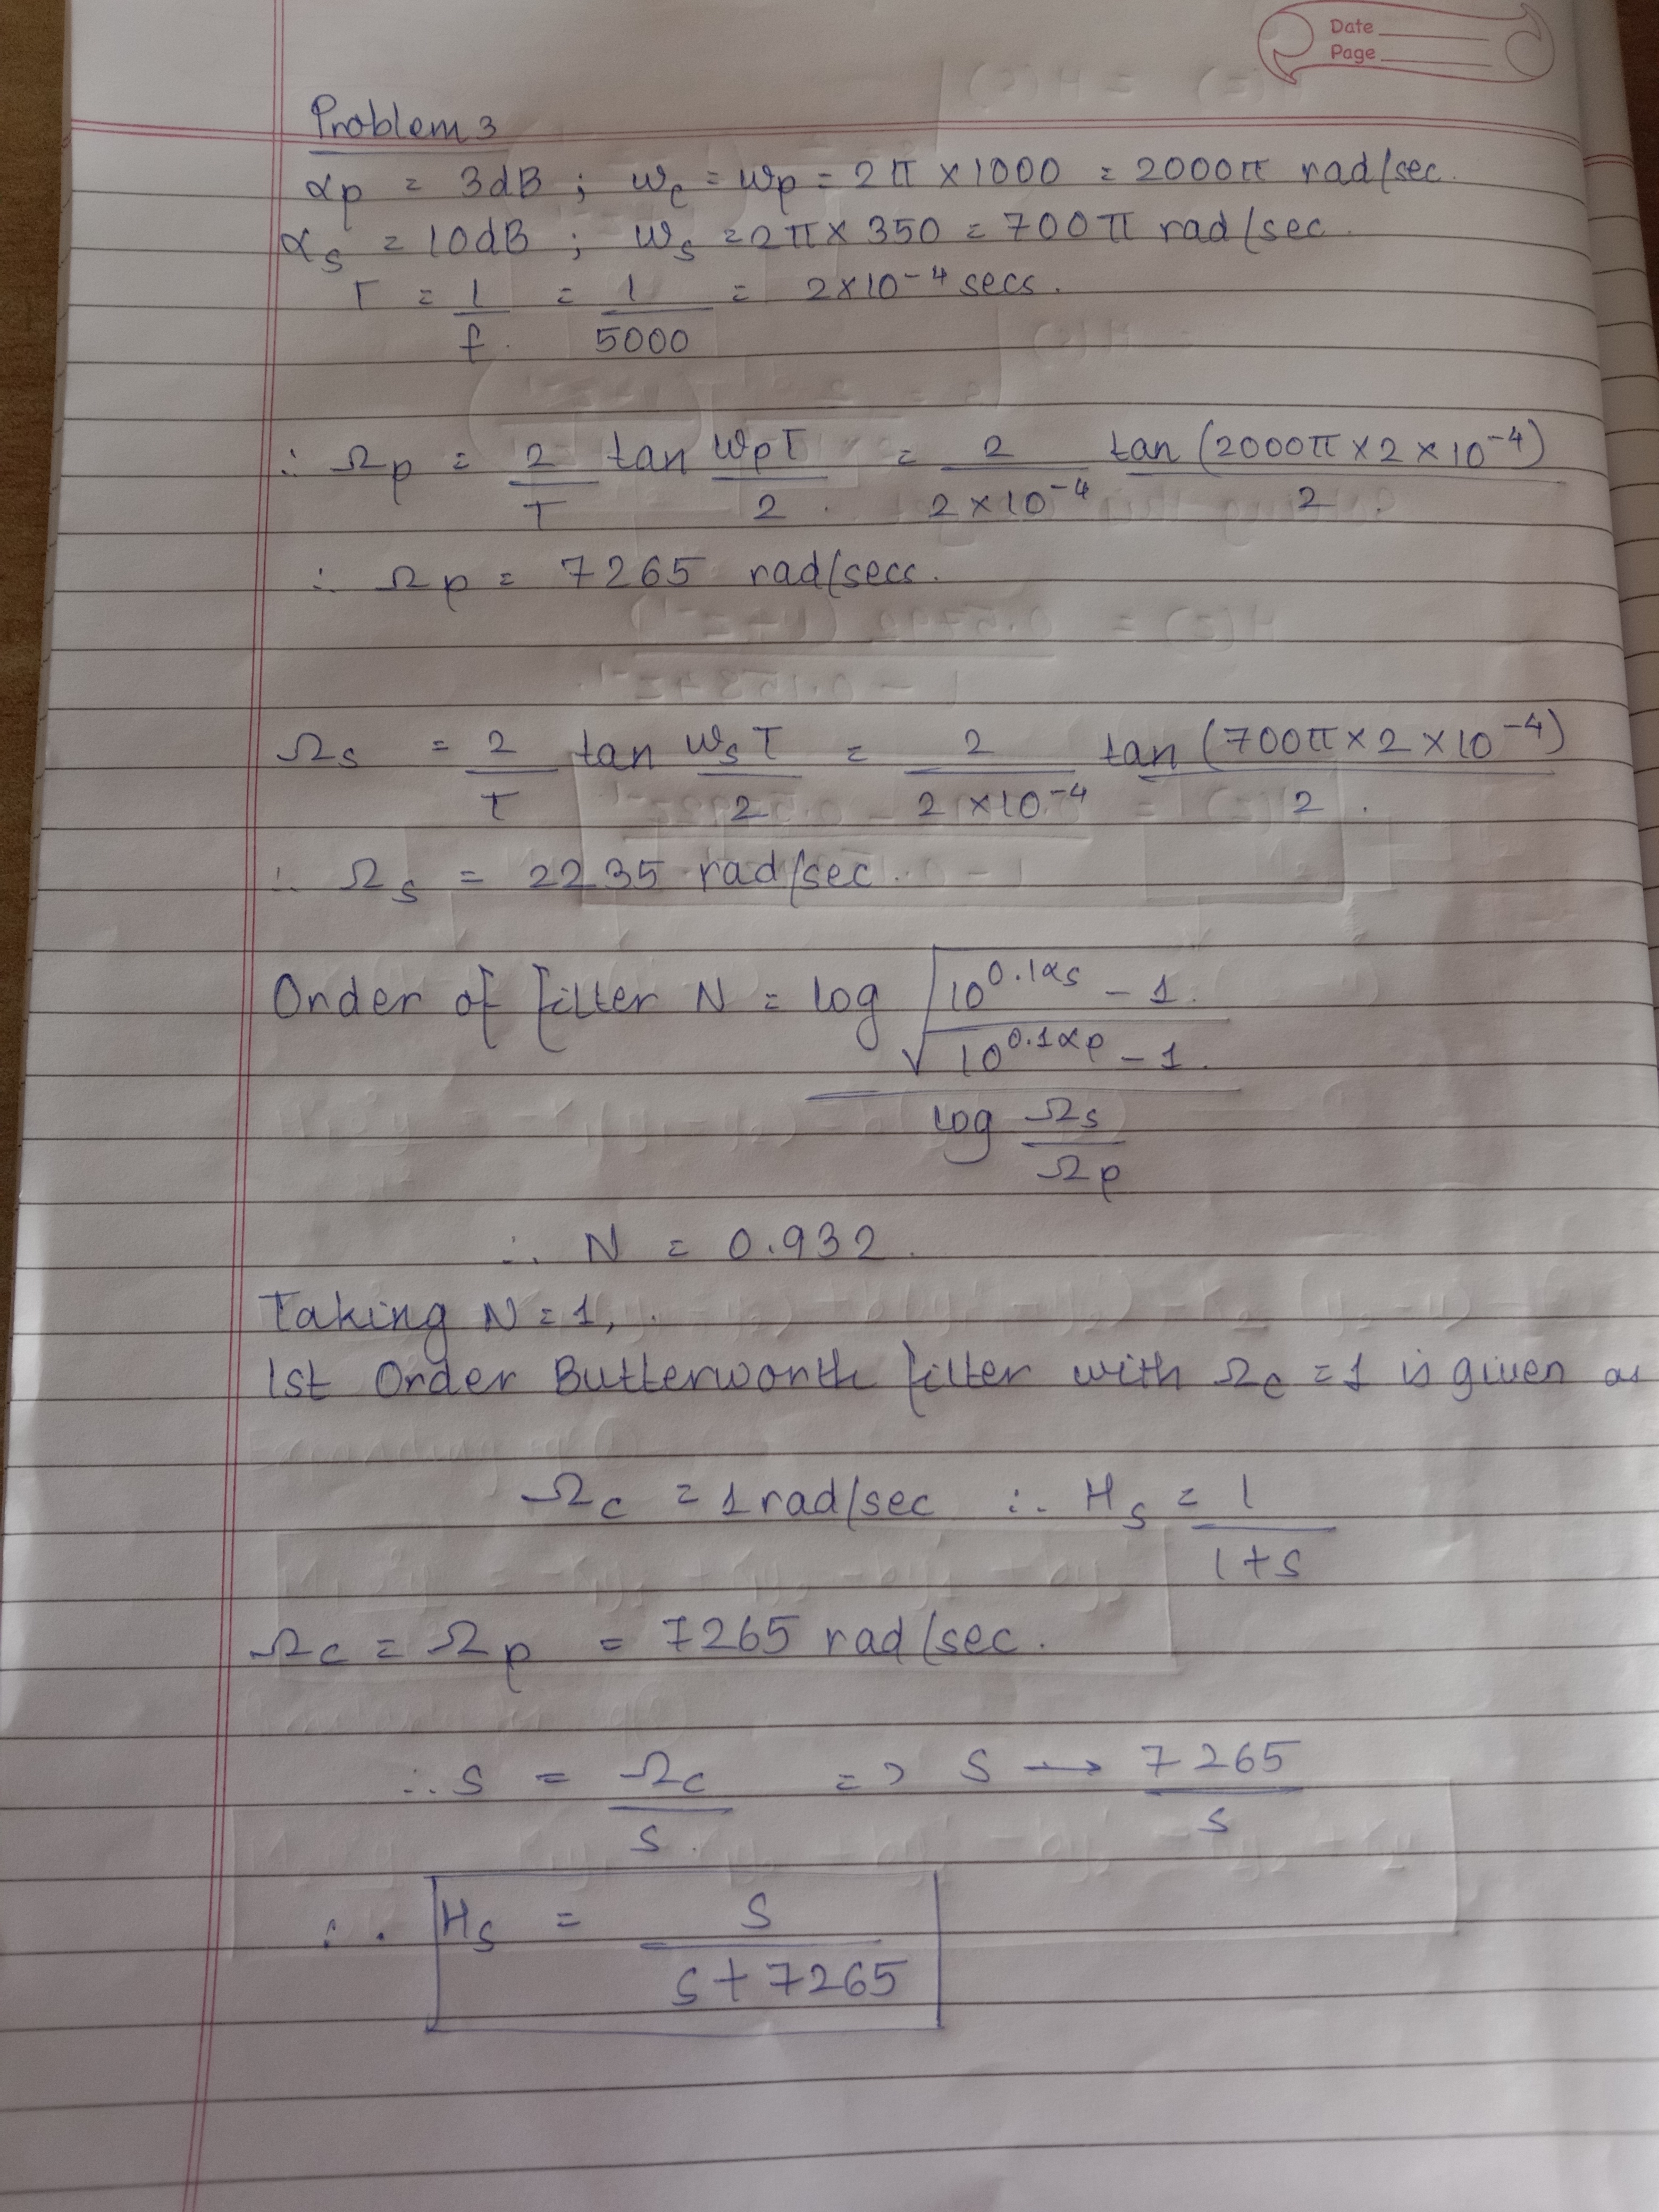 Date
Page
Problem 3
αp = 3dB ; ωc = ωp = 2π × 1000 = 2000π rad/sec.
αs = 10dB ; ωs = 2π × 350 = 700π rad/sec.
T = 1/f. = 1/5000 = 2×10⁻⁴ secs.
∴ Ωp = 2/T tan ωpT/2 . = 2/2×10⁻⁴ tan (2000π × 2 × 10⁻⁴)/2 .
∴ Ωp = 7265 rad/secs.
Ωs = 2/T tan ωsT/2 = 2/2×10⁻⁴ tan (700π × 2 × 10⁻⁴)/2 .
∴ Ωs = 2235 rad/sec.
Order of filter N = log √((10^0.1αs - 1)/(10^0.1αp - 1)) / log Ωs/Ωp
∴ N = 0.932.
Taking N = 1,
1st Order Butterworth filter with Ωc = 1 is given as
Ωc = 1 rad/sec ∴ Hs = 1/1+s
Ωc = Ωp = 7265 rad/sec.
∴ s = Ωc/s. => s → 7265/s
∴ Hs = s/s+7265